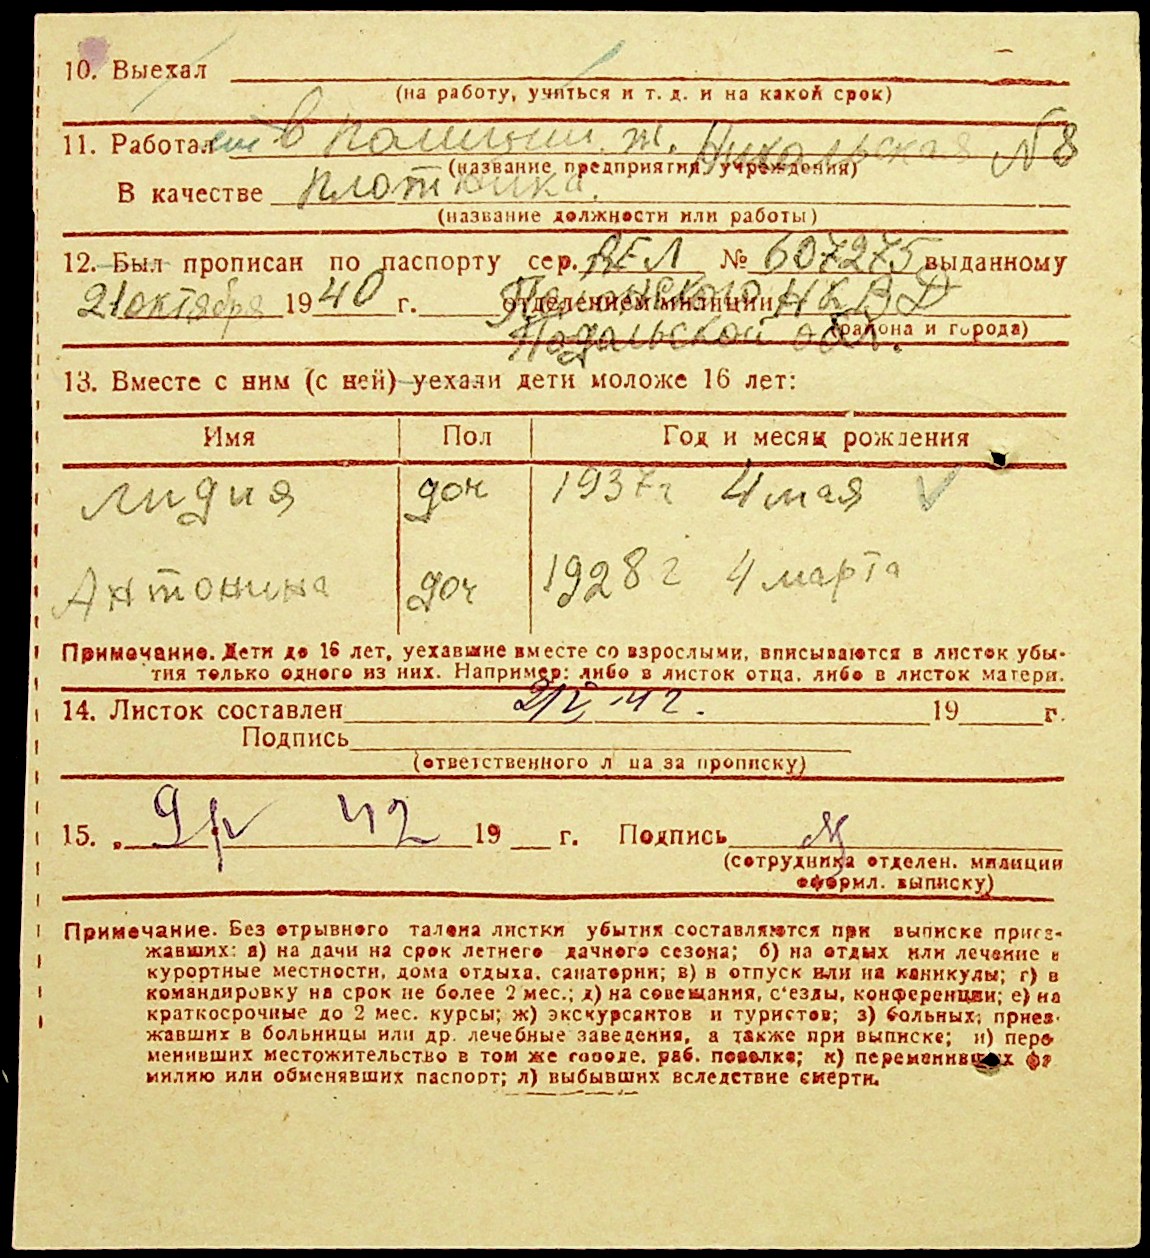 10. Выехал
(на работу, учиться и т. д. и на какой срок)
11. Работал в полиции ж. Никольская №8
(название предприятия, учреждения)
В качестве плотника.
(название должности или работы)
12. Был прописан по паспорту сер. № 607275 выданному
21 октября 1940 г. отделением милиции НКВД
Подольской обл. (района и города)
13. Вместе с ним (с ней) уехали дети моложе 16 лет:
Имя Пол Год и месяц рождения
Лидия доч 1937г 4 мая
Антонина доч 1928г 4 марта
Примечание. Дети до 16 лет, уехавшие вместе со взрослыми, вписываются в листок убы-
тия только одного из них. Например: либо в листок отца, либо в листок матери.
14. Листок составлен 19 г.
Подпись
(ответственного лица за прописку)
15. „ 42 19 г. Подпись
(сотрудника отделен. милиции
оформл. выписку)
Примечание. Без отрывного талона листки убытия составляются при выписке приез-
жавших: а) на дачи на срок летнего дачного сезона; б) на отдых или лечение в
курортные местности, дома отдыха, санатории; в) в отпуск или на каникулы; г) в
командировку на срок не более 2 мес.; д) на совещания, с'езды, конференции; е) на
краткосрочные до 2 мес. курсы; ж) экскурсантов и туристов; з) больных, приез-
жавших в больницы или др. лечебные заведения, а также при выписке; и) пере
менивших местожительство в том же городе, раб. поселке; к) переменивших фа
милию или обменявших паспорт; л) выбывших вследствие смерти.